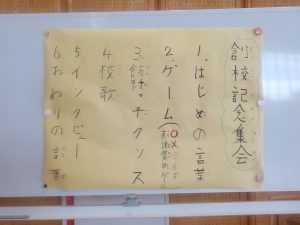 創校記念集会
1. はじめの言葉
2. ゲーム(〇×クイズ
ゲーム
4. 校歌
5. インタビュー
6. おわりの言葉